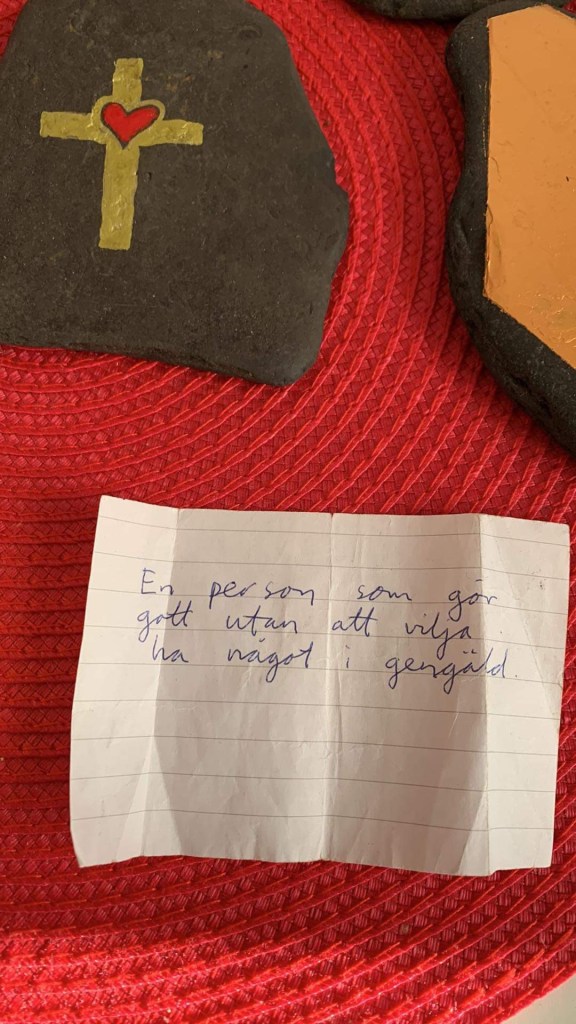 En person som gör
gott utan att vilja
ha något i gengäld.